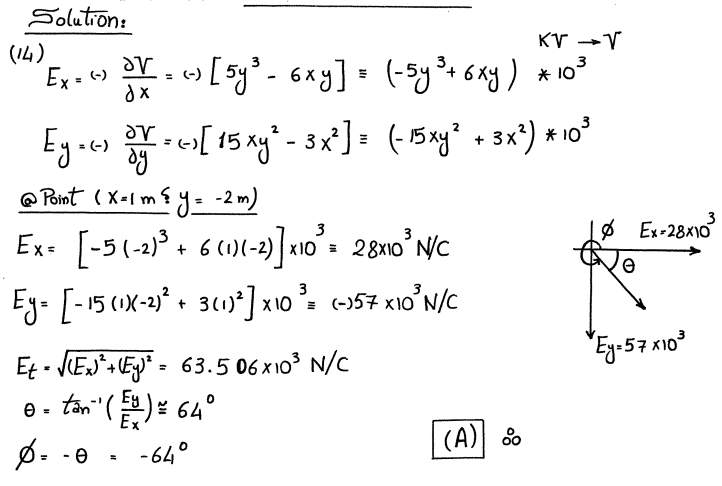 Solution:
(14)
KV → V
Ex = (-) ∂V/∂x = (-) [5y³ - 6xy] ≡ (-5y³ + 6xy) * 10³
Ey = (-) ∂V/∂y = (-) [15xy² - 3x²] ≡ (-15xy² + 3x²) * 10³
@ Point (X=1m & y= -2m)
Ex = [-5(-2)³ + 6(1)(-2)] x10³ ≡ 28x10³ N/C
Ey = [-15(1)(-2)² + 3(1)²] x10³ ≡ (-)57 x10³ N/C
Et = √(Ex)²+(Ey)² = 63.506x10³ N/C
θ = tan⁻¹(Ey/Ex) ≅ 64°
Ø = -θ = -64°
Ø Ex=28x10³
θ
Ey=57x10³
(A)